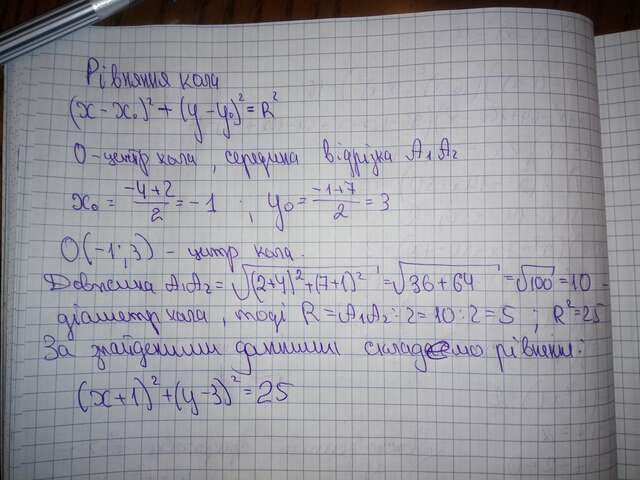 Рівняння кола
(x - x₀)² + (y - y₀)² = R²
O - центр кола, середина відрізка A₁A₂
x₀ = (-4+2)/2 = -1 ; y₀ = (-1+7)/2 = 3
O(-1; 3) - центр кола.
Довжина A₁A₂ = √((2+4)²+(7+1)²) = √(36+64) = √100 = 10 -
діаметр кола, тоді R = A₁A₂ : 2 = 10 : 2 = 5 ; R² = 25
За знайденими данними складемо рівняння:
(x+1)² + (y-3)² = 25